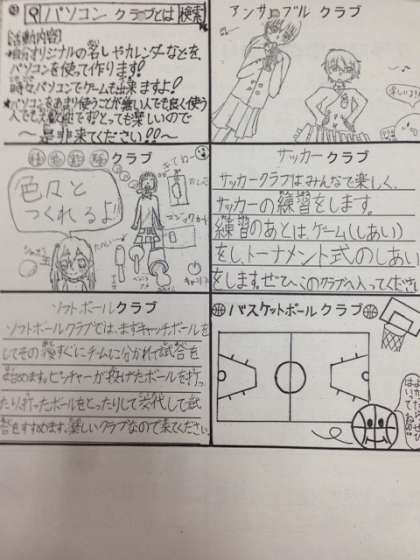 パソコン クラブとは 検索
活動内容
自分オリジナルの名しやカレンダなどを、
パソコンを使って作ります!
時々パソコンでゲームも出来ますよ!
★パソコンをあまり使うことが無い人でも良く使う
人でも大歓迎です。とっても楽しいので
〜是非来てください!!〜
アンサンブル クラブ
クラブ
色々と
つくれるよ!!
サッカークラブ
サッカークラブはみんなで楽しく、
サッカーの練習をします。
練習のあとは、ゲーム(しあい)
をし、トーナメント式のしあい
をします。ぜひ、このクラブへ入ってくださ
ソフトボールクラブ
ソフトボールクラブでは、まずキャッチボールを
してその後すぐにチームに分かれて試合を
始めます。ピッチャーが投げたボールを打っ
たり、打ったボールをとったりして交代して試
合をすすめます。楽しいクラブなので来てください。
バスケットボールクラブ